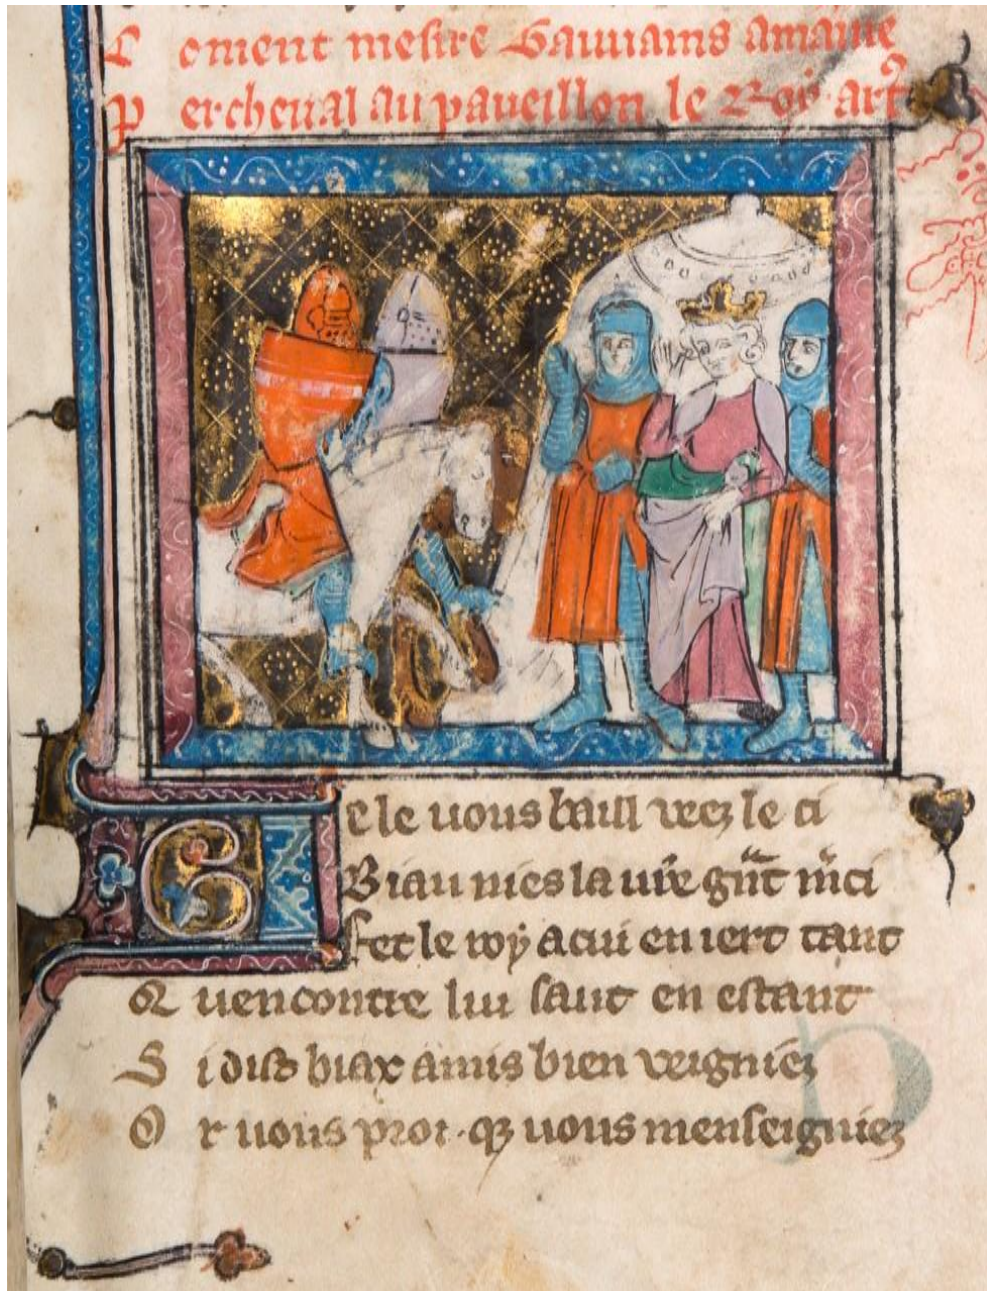 C oment mesire Gauuains amaine
P ercheual au paueillon le Roy art9
Ge le uous baill veez le ci
Biau nies la vr̄e gñt m̄ci
Fet le roy a cui en iert tant
Q uencontre lui saut en estant
S i dist biax amis bien veigniez
O r uous proi qȝ uous menseigniez